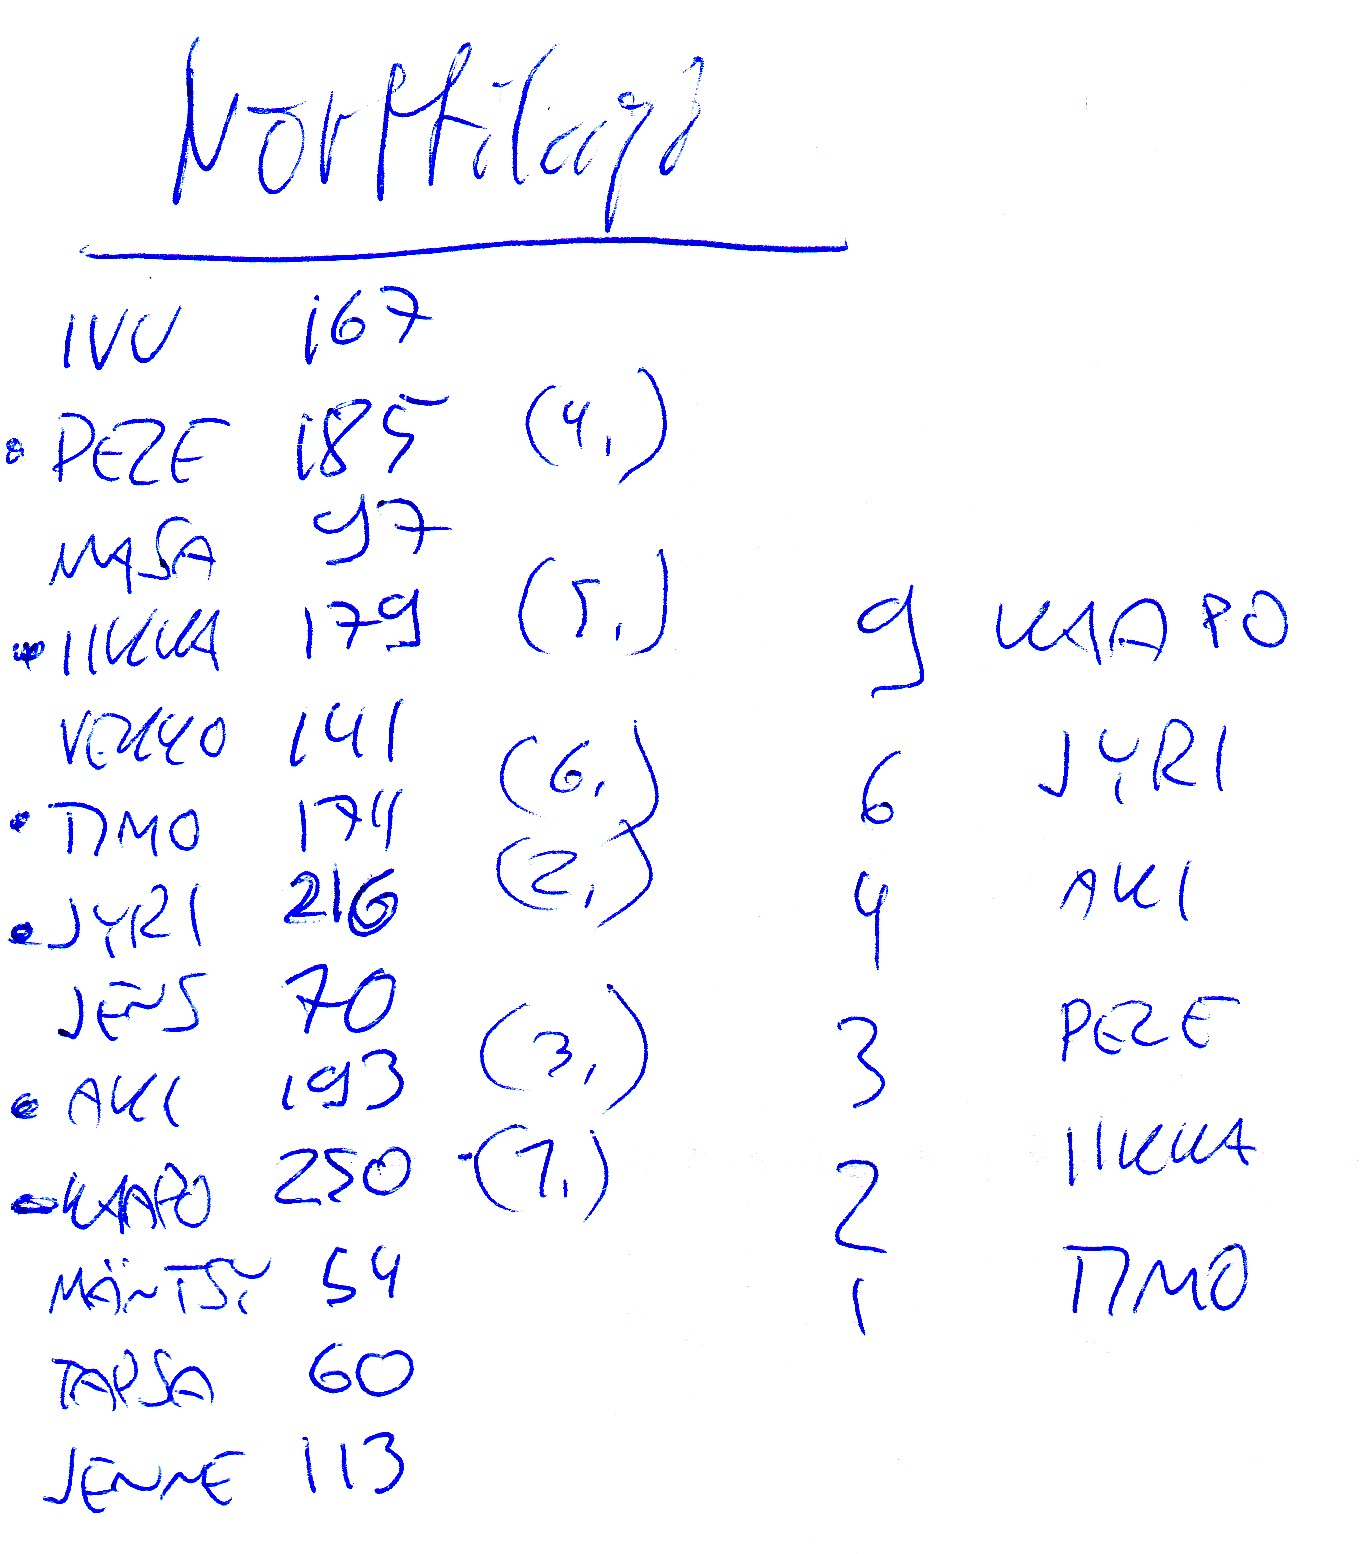 Nörttilaji
IVU 167
PEZE 185 (4.)
MASA 97
IIKKA 179 (5.)
VEKKO 141
TIMO 174 (6.)
JYRI 216 (2.)
JENS 70
AKI 193 (3.)
KAAPO 250 (1.)
MÄNTSY 54
TAPSA 60
JENNE 113
9 KAAPO
6 JYRI
4 AKI
3 PEZE
2 IIKKA
1 TIMO